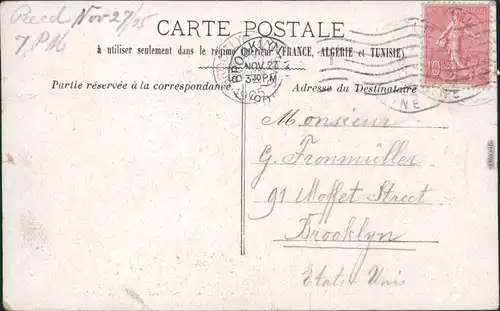 Recd Nov 27/05
7. PM
CARTE POSTALE
à utiliser seulement dans le régime intérieur (FRANCE, ALGÉRIE et TUNISIE)
BROOKLYN
NOV. 27
3-30 PM
1905
10
NE
Partie réservée à la correspondance
Adresse du Destinataire
Monsieur
G. Fronmüller
91 Moffet Street
Brooklyn
Etats-Unis